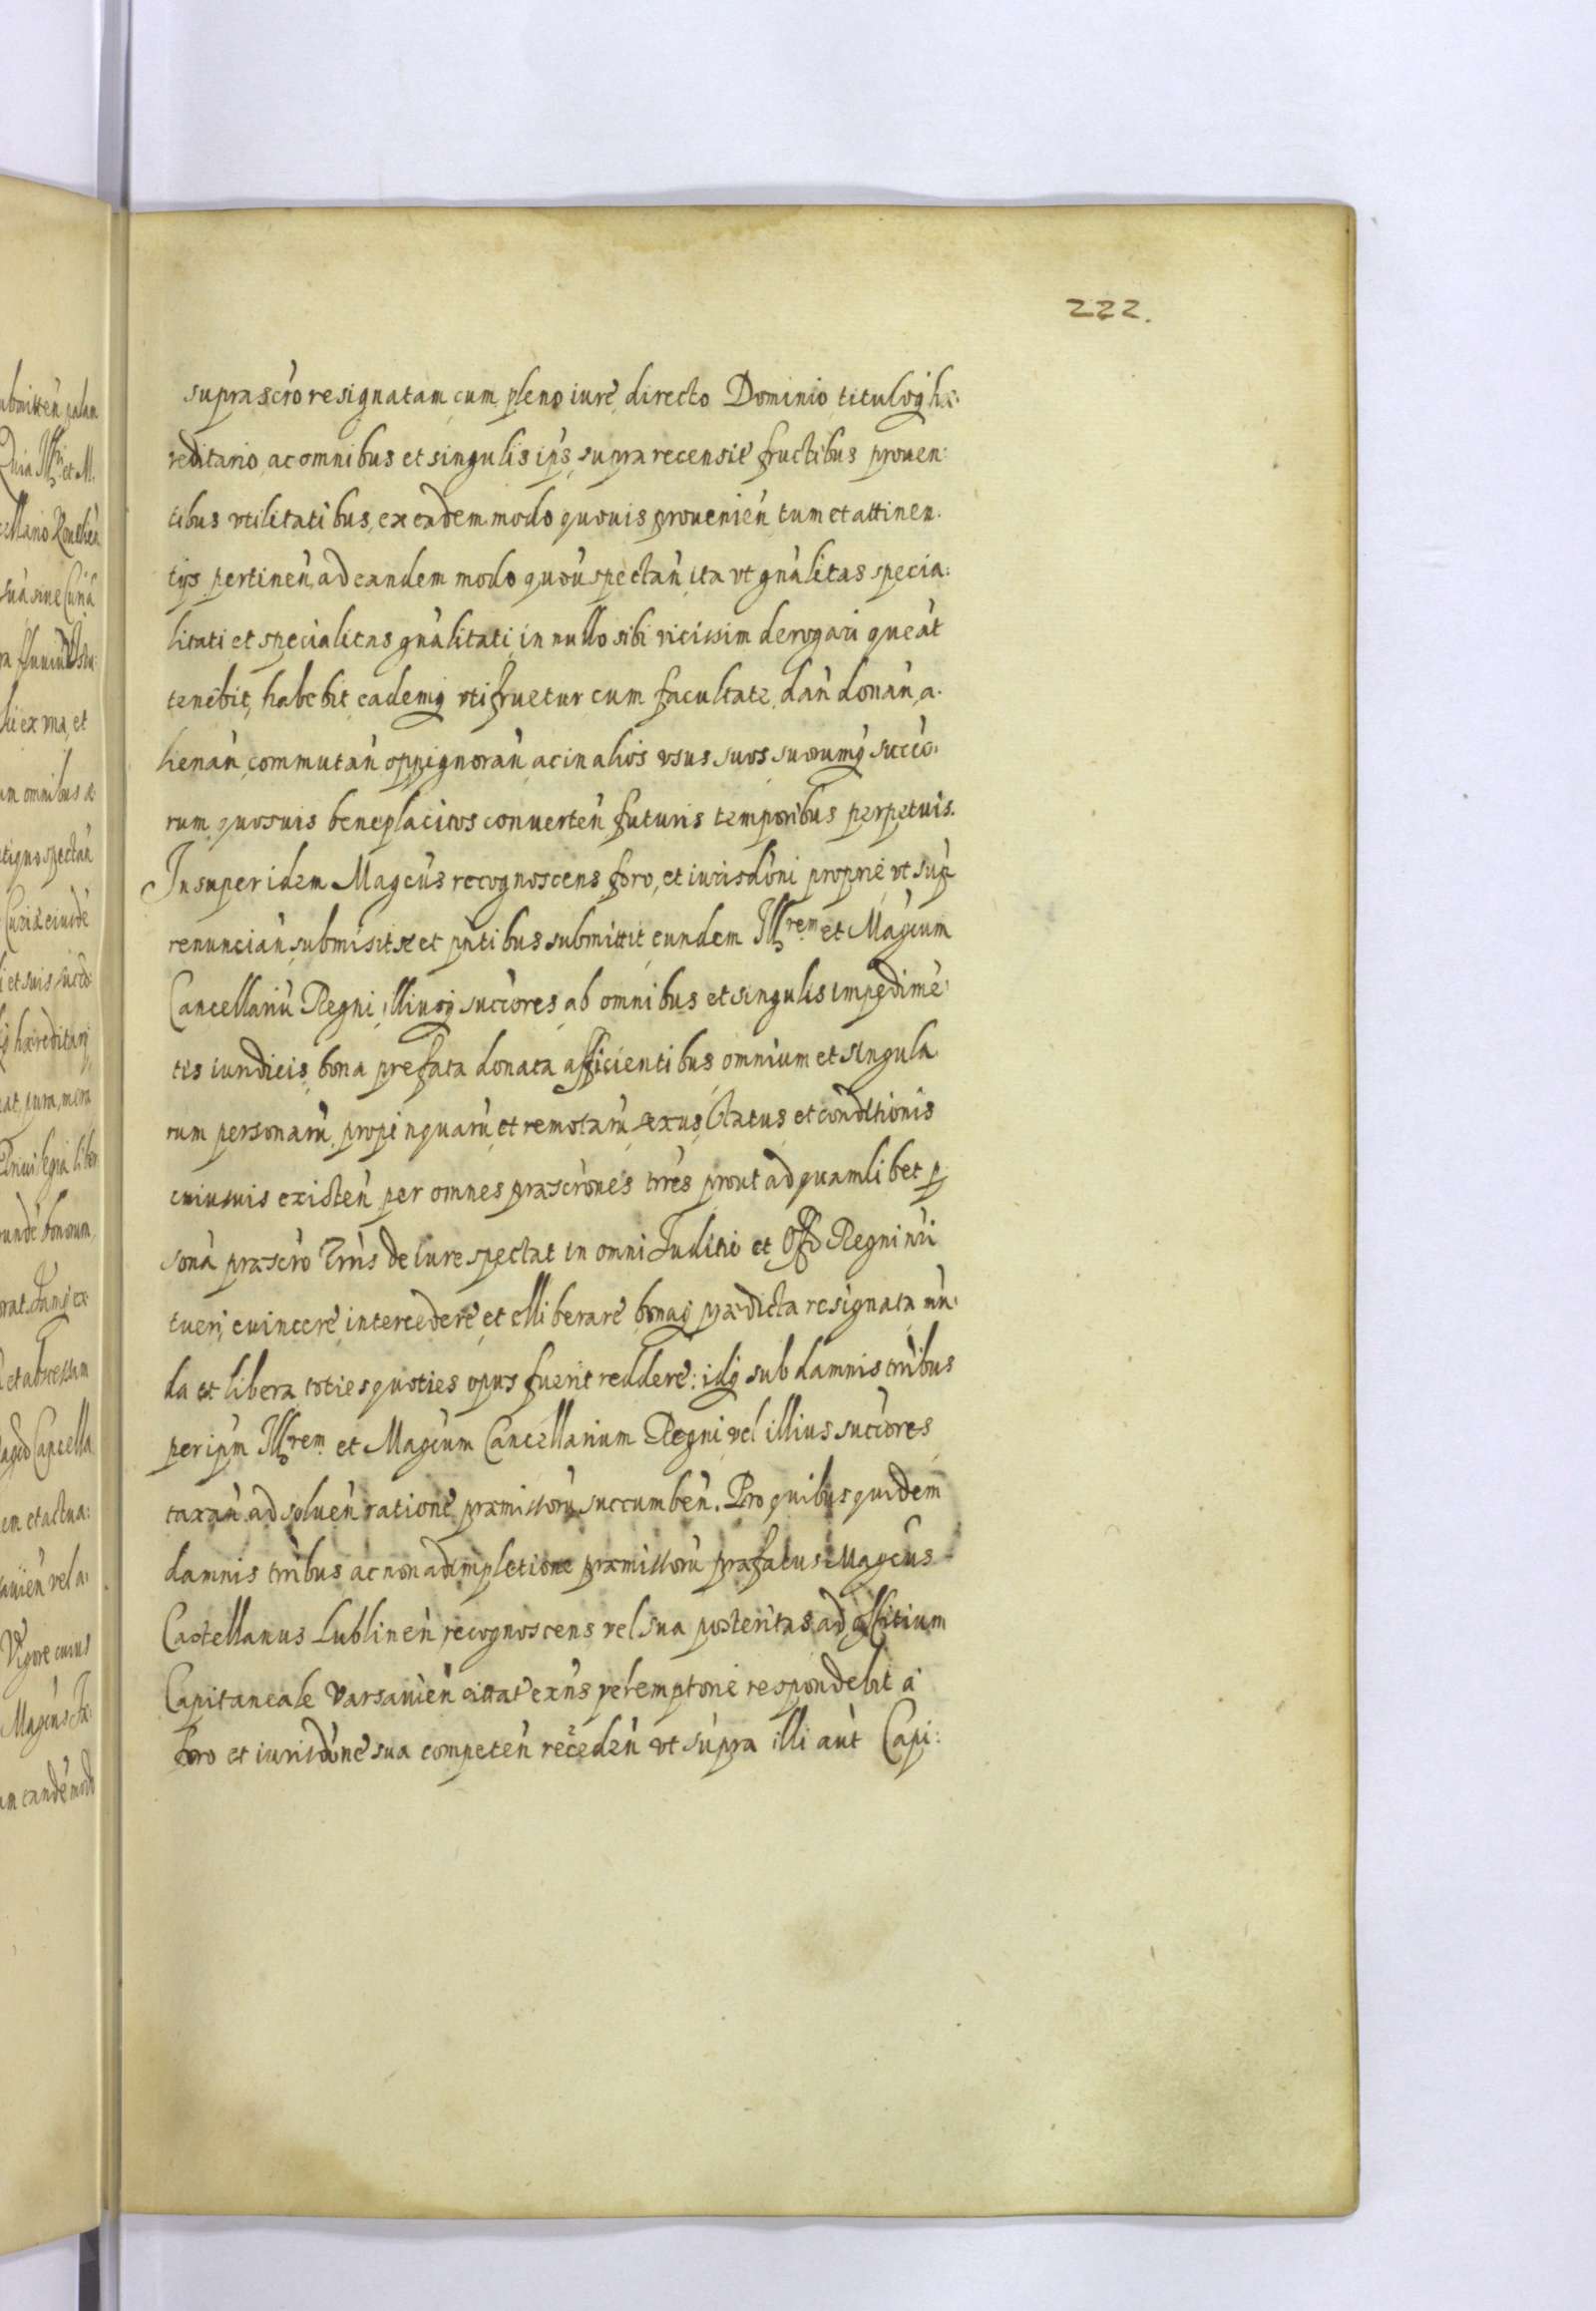 222.
suprascro resignatam cum pleno iure directo Dominio tituloq́ hæ:
reditario ac omnibus et singulis ip̀s supra recensit̀ fructibus prouen:
tibus vtilitatibus, ex eadem modo quouis prouenień tum et attinen:
tijs pertineń ad eandem modo quoú spectań ita vt gńalitas specia:
litati et specialitas gńalitati in nullo sibi vicissim derogari queat
tenebit, habebit eademq́ vti fruetur cum facultate dań donań a:
lienań commutań oppignorań ac in alios vsus suos suorumq́ succo:
rum quosuis beneplacitos converteń futuris temporibus perpetuis.
Insuper idem Magcús recognoscens foro, et iurisdóni proprie vt sup̃
renunciań submisit se et pńtibus submittit eundem Illrem et Magcum
Cancellariú Regni, illiusq́ succores ab omnibus et singulis impedimé:
tis iuridicis bona prefata donata afficientibus omnium et singula
rum personarú propinquarú et remotarú sexus status et conditionis
cuiusuis existeń per omnes præscrones trres prout ad quamlibet p
soná præscro Trris de iure spectat in omni Juditio et Offo Regni nri
tueri, euincere, intercedere et elliberare bonaq́ prædicta resignata mú:
da et libera toties quoties opus fuerit reddere: idq́ sub damnis trribus
per ipm Illrem et Magcum Cancellarium Regni vel illius succores
taxań ad solueń ratione præmissorú succumbeń. Pro quibus quidem
damnis trribus ac non adimpletione præmissorú præfatus Magcús
Castellanus Lublineń recognoscens vel sua posteritas ad officium
Capitaneale Varsauień cittat exńs peremptorie respondebit a
foro et iurisdóne sua competeń recedeń vt supra illi aut Capi: